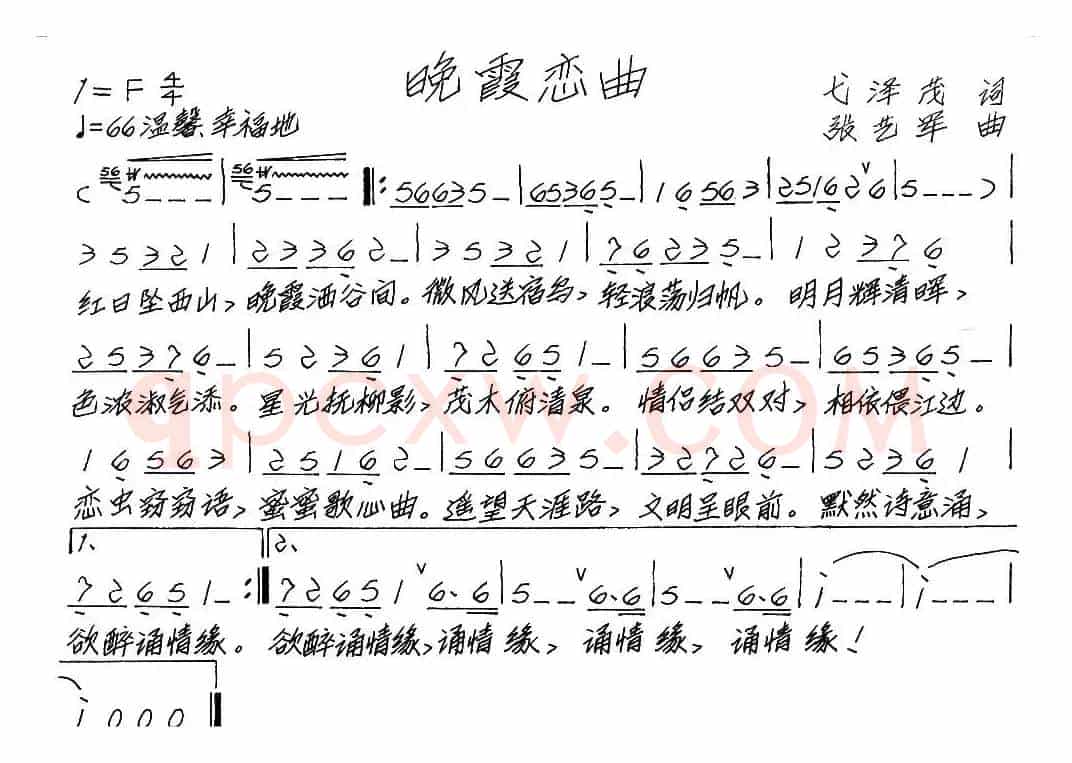 晚霞恋曲
1=F 4/4
♩=66 温馨、幸福地
弋泽茂 词
张艺军 曲
( 5 - - - | 5 - - - ‖: 56635- | 65365- | 16563 | 25162ⱽ6 | 5--- )
35321 | 23362- | 35321 | 76235- | 12376
红日坠西山、晚霞洒谷间。微风送宿鸟、轻浪荡归帆。明月辉清晖、
25376- | 52361 | 72651- | 56635- | 65365-
色浓淑气添。星光抚柳影、茂木俯清泉。情侣结双对、相依偎江边。
16563 | 25162- | 56635- | 32726- | 52361
恋虫窃窃语、蜜蜜歌心曲。遥望天涯路、文明呈眼前。默然诗意涌、
1、 2、
72651- :‖ 72651 ⱽ6.6 | 5-- ⱽ6.6 | 5-- ⱽ6.6 | i--- | i---
欲醉诵情缘。欲醉诵情缘、诵情缘、诵情缘、诵情缘！
i 0 0 0 ‖
qpcxw.com